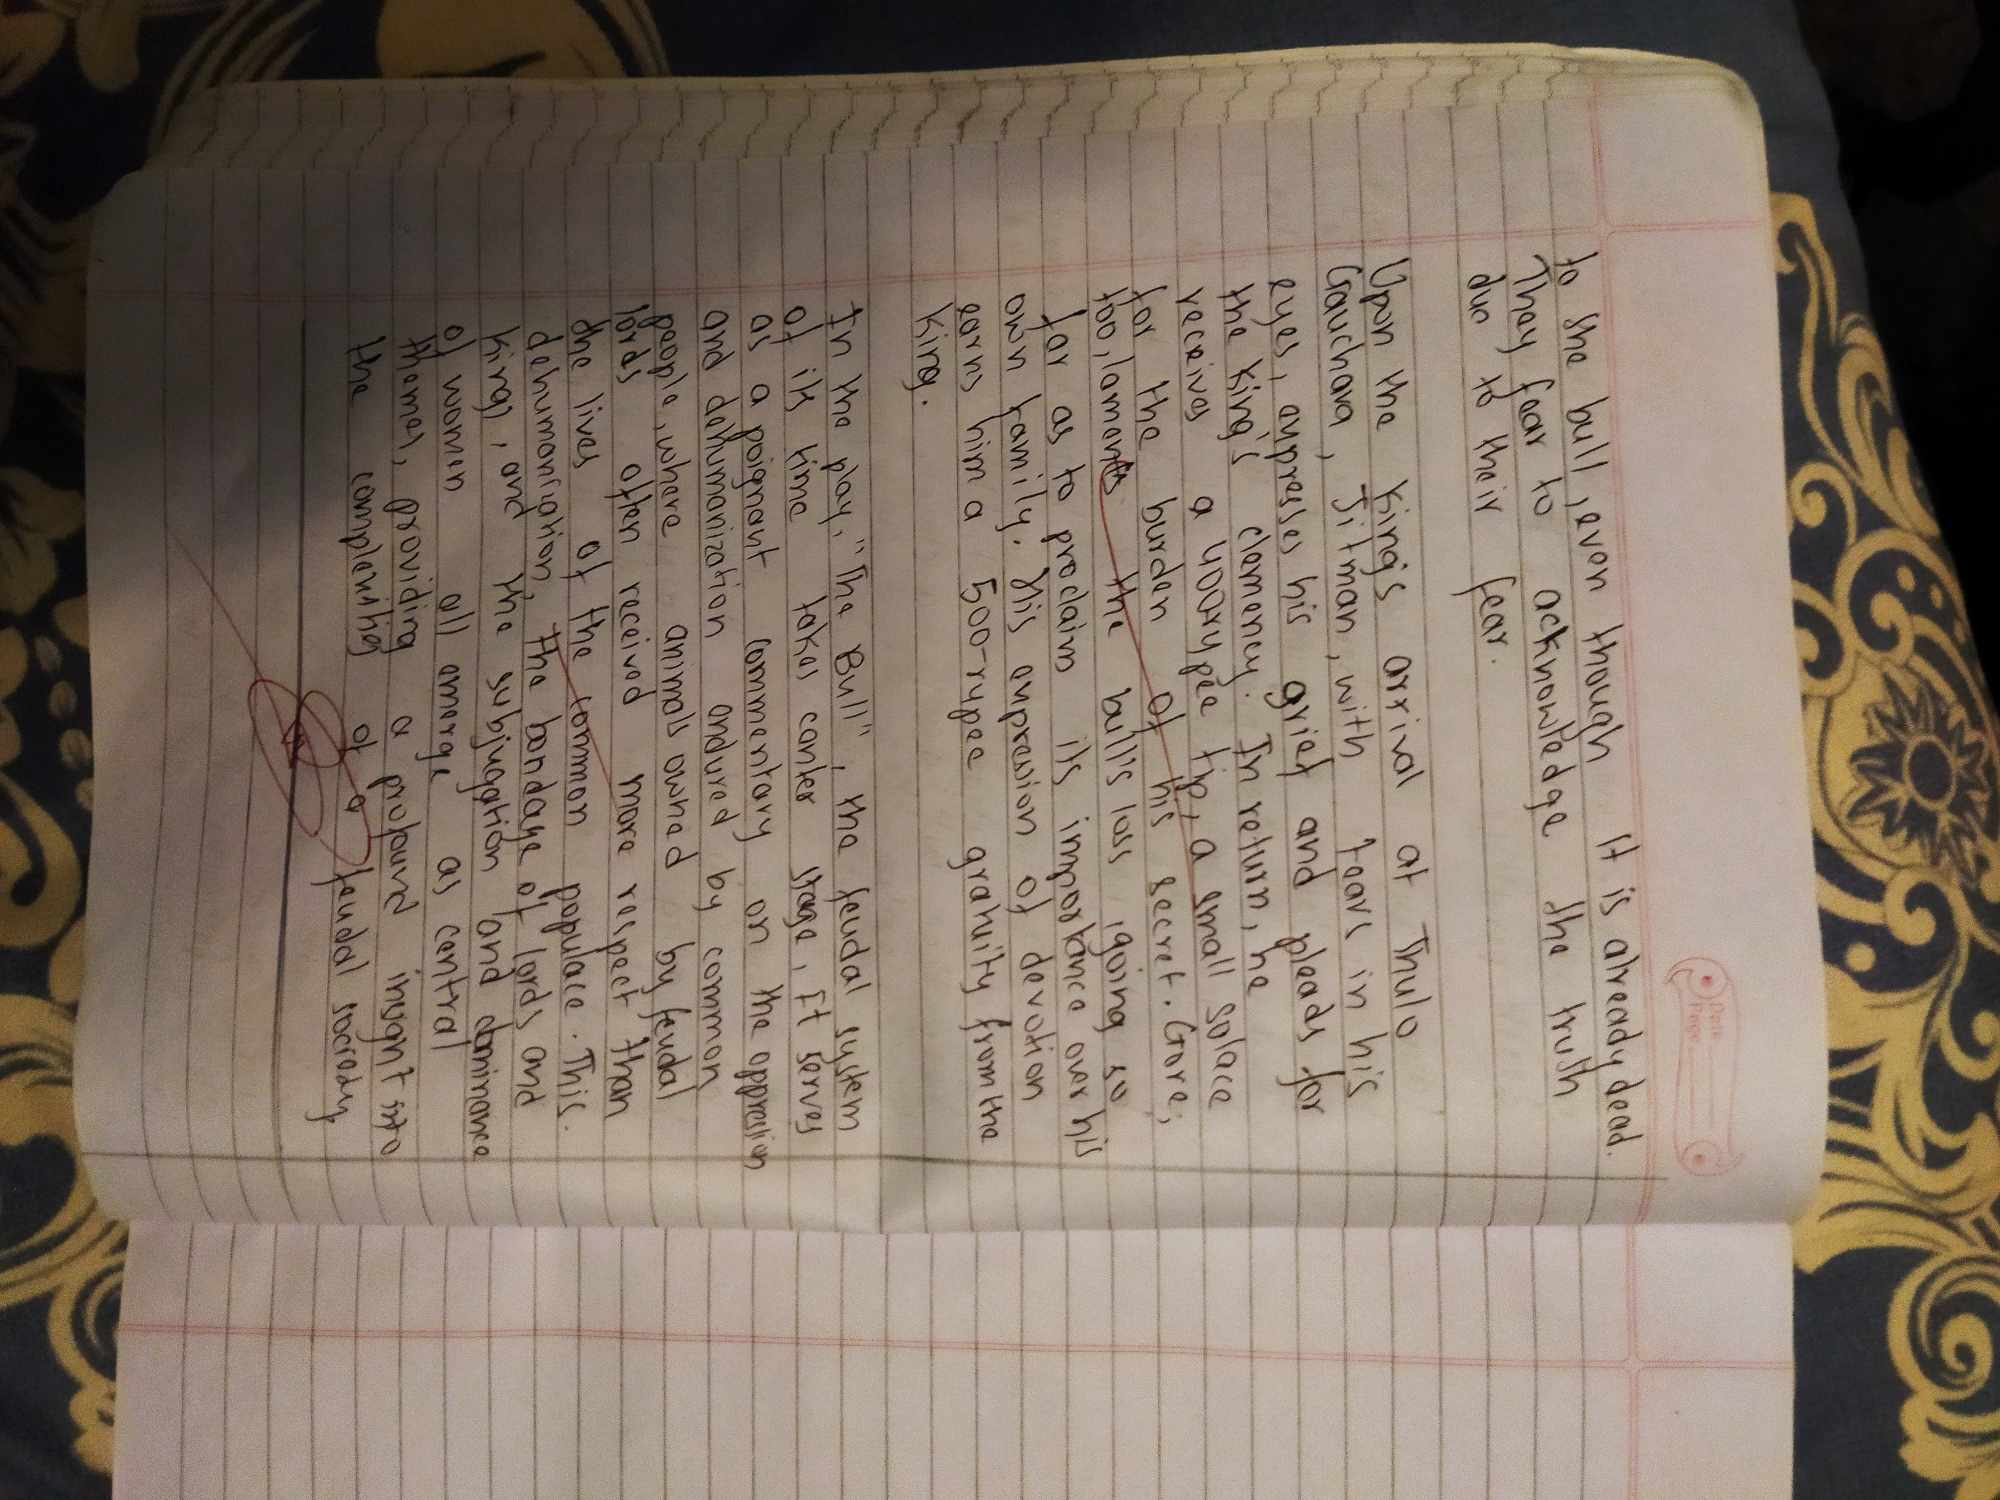 Date
Page
to the bull, even though It is already dead.
They fear to acknowledge the truth
due to their fear.
Upon the King's arrival at Thulo
Gauchara, Jitman, with tears in his
eyes, expresses his grief and pleads for
the King's clemency. In return, he
receives a 400-rupee tip, a small solace
for the burden of his secret. Gore,
too, laments the bull's loss, going so
far as to proclaim its importance over his
own family. His expression of devotion
earns him a 500-rupee gratuity from the
King.
In the play, "The Bull", the feudal system
of its time takes center stage, It serves
as a poignant commentary on the oppression
and dehumanization endured by common
people, where animals owned by feudal
lords often received more respect than
the lives of the common populace. This
dehumanization, the bondage of lords and
kings, and the subjugation and dominance
of women all emerge as central
themes, providing a profound insight into
the complexities of a feudal society.